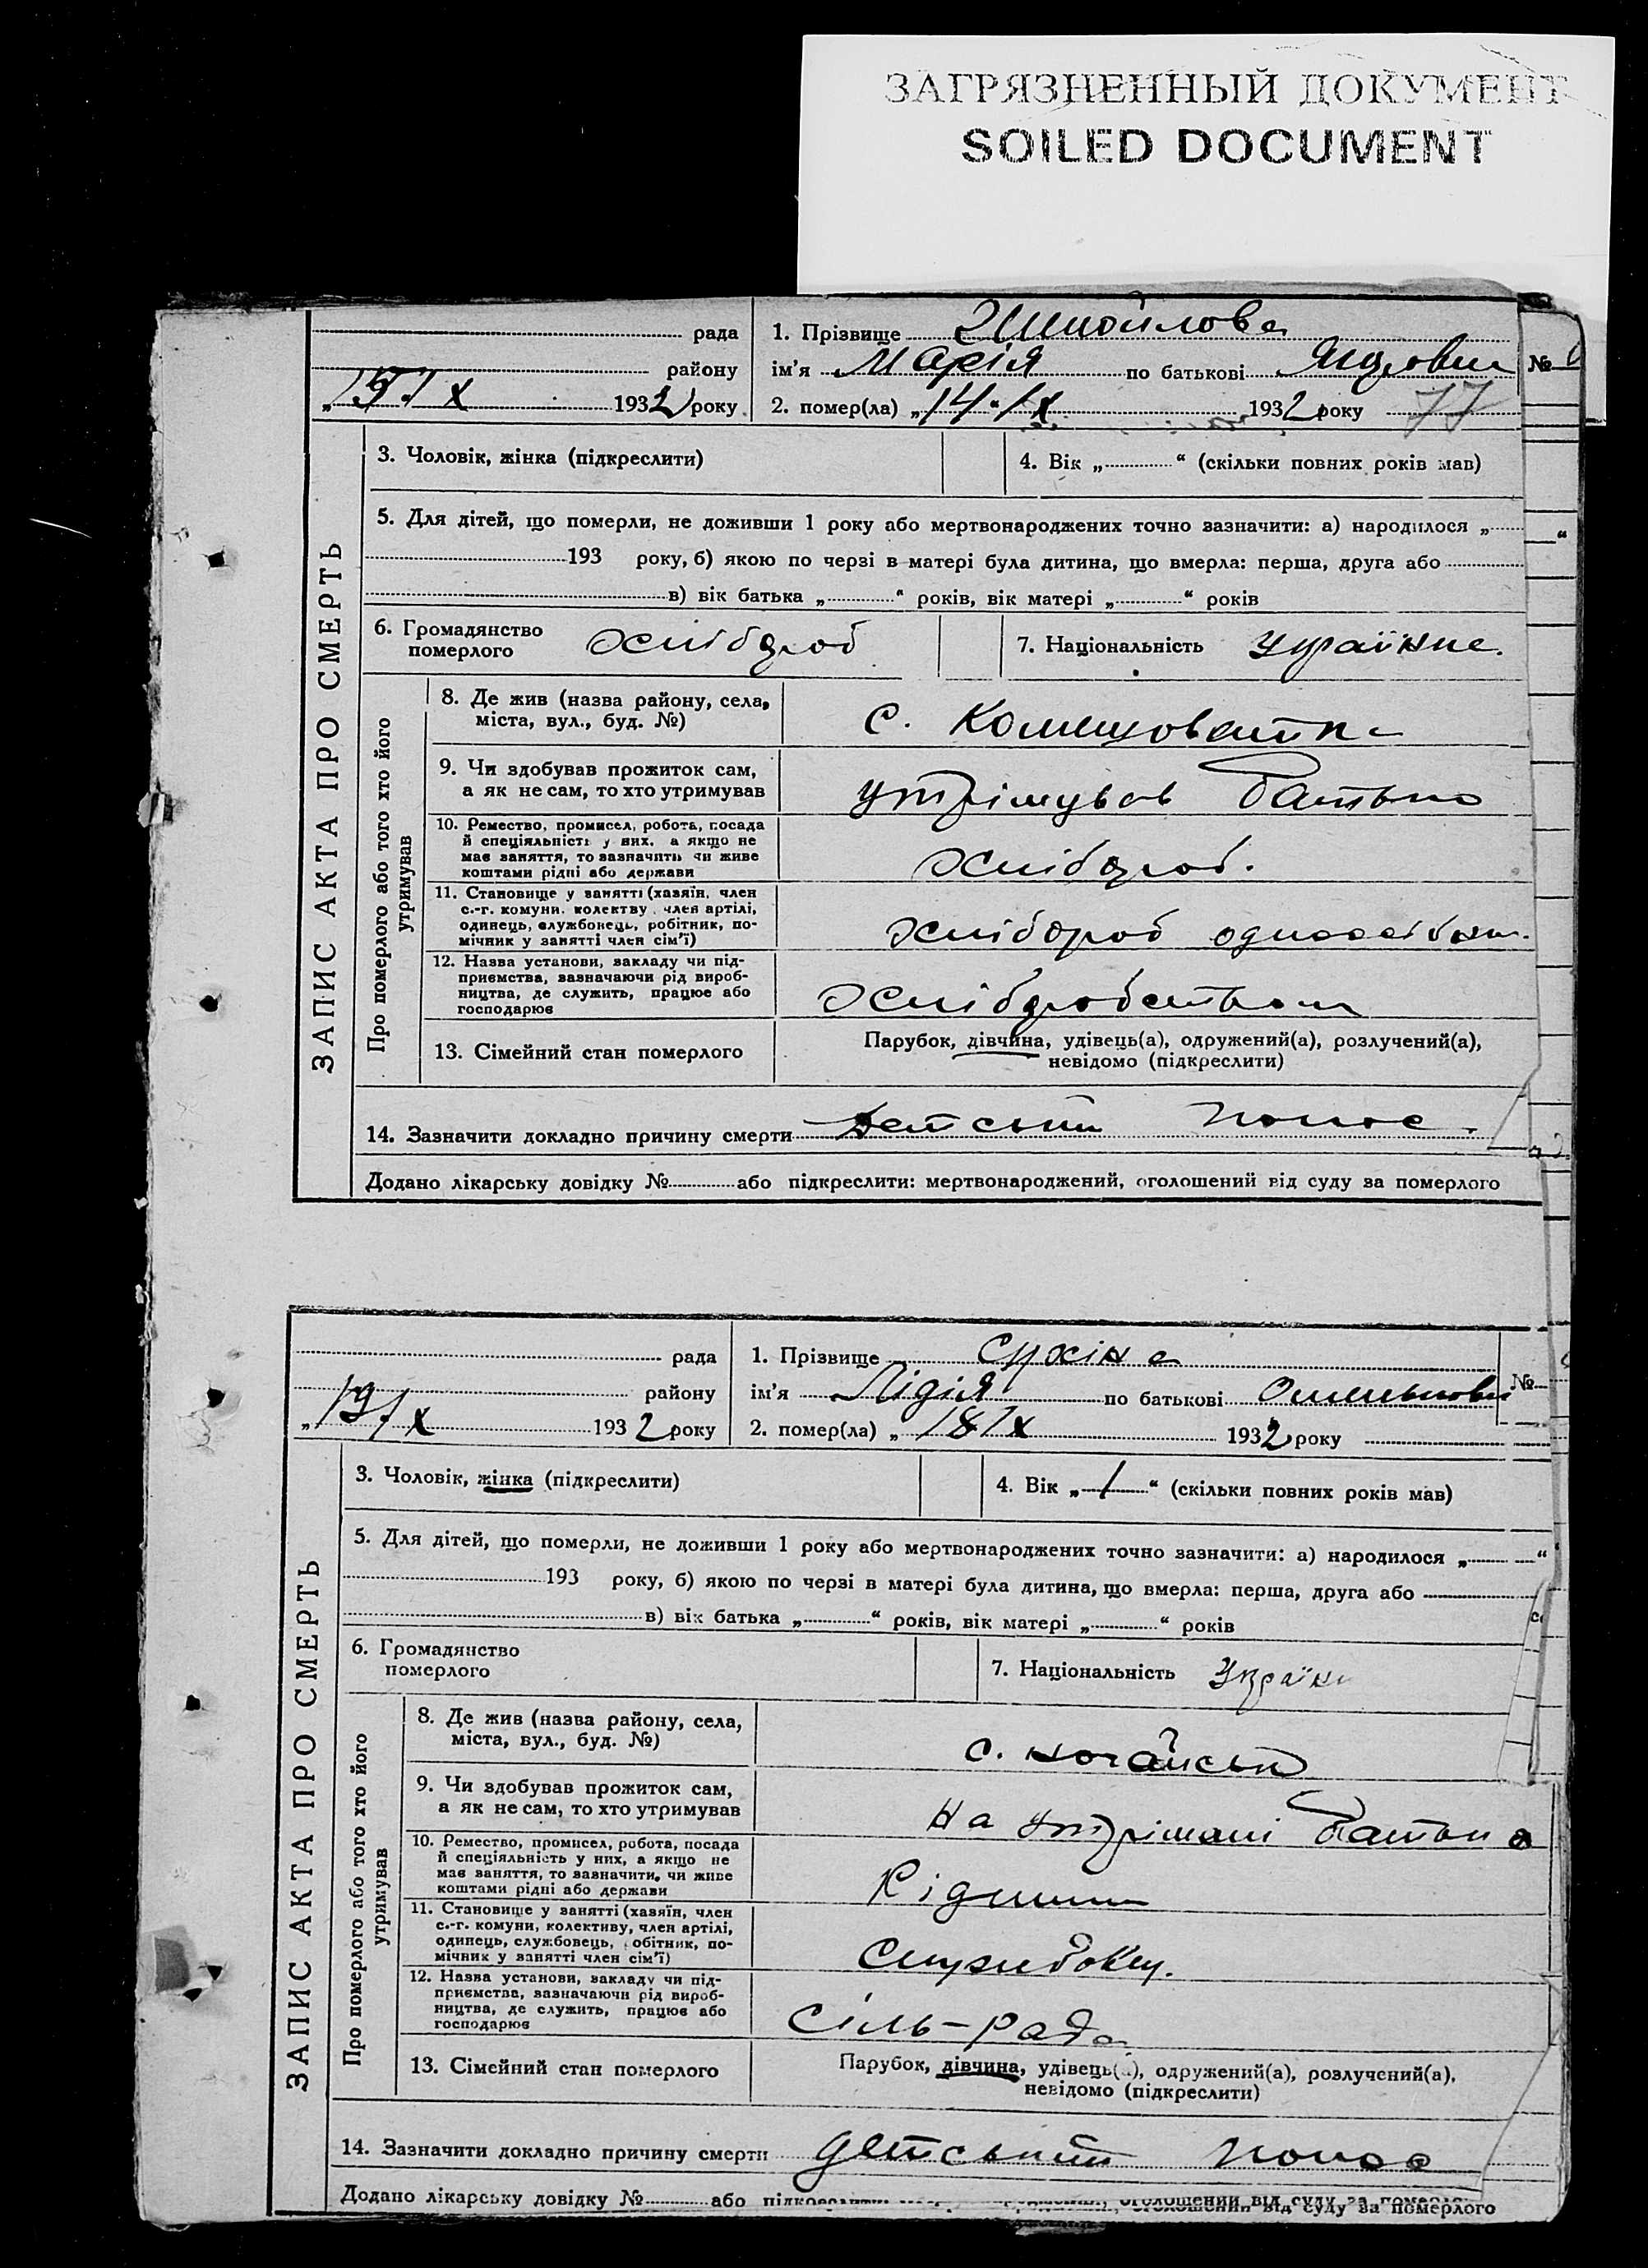 ЗАГРЯЗНЕННЫЙ ДОКУМЕНТ
SOILED DOCUMENT
рада
району
„15/X 1932 року
1. Прізвище
ім'я Марія по батькові №
2. помер(ла) „14/X 1932 року 77
ЗАПИС АКТА ПРО СМЕРТЬ
3. Чоловік, жінка (підкреслити)
4. Вік „ “ (скільки повних років мав)
5. Для дітей, що померли, не доживши 1 року або мертвонароджених точно зазначити: а) народилося „ “
193 року, б) якою по черзі в матері була дитина, що вмерла: перша, друга або
в) вік батька „ “ років, вік матері „ “ років
6. Громадянство
померлого
хлібороб
7. Національність україн
Про померлого або того хто його
утримував
8. Де жив (назва району, села,
міста, вул., буд. №)
с.
9. Чи здобував прожиток сам,
а як не сам, то хто утримував
утрімував батько
10. Ремество, промисел, робота, посада
й спеціяльність у них, а якщо не
має заняття, то зазначить чи живе
коштами рідні або держави
хлібороб.
11. Становище у занятті (хазяїн, член
с.-г. комуни, колективу, член артілі,
одинець, службовець, робітник, по-
мічник у занятті член сім'ї)
хлібороб
12. Назва установи, закладу чи під-
приємства, зазначаючи рід вироб-
ництва, де служить, працює або
господарює
хліборобством
13. Сімейний стан померлого
Парубок, дівчина, удівець(а), одружений(а), розлучений(а),
невідомо (підкреслити)
14. Зазначити докладно причину смерти Детський понос.
Додано лікарську довідку № або підкреслити: мертвонароджений, оголошений від суду за померлого
рада
району
„19/X 1932 року
1. Прізвище
ім'я Лідія по батькові №
2. помер(ла) „18/X 1932 року
ЗАПИС АКТА ПРО СМЕРТЬ
3. Чоловік, жінка (підкреслити)
4. Вік „1“ (скільки повних років мав)
5. Для дітей, що померли, не доживши 1 року або мертвонароджених точно зазначити: а) народилося „ “
193 року, б) якою по черзі в матері була дитина, що вмерла: перша, друга або
в) вік батька „ “ років, вік матері „ “ років
6. Громадянство
померлого
7. Національність Україн
Про померлого або того хто його
утримував
8. Де жив (назва району, села,
міста, вул., буд. №)
с. Ногайськ
9. Чи здобував прожиток сам,
а як не сам, то хто утримував
на утрімані батька
10. Ремество, промисел, робота, посада
й спеціяльність у них, а якщо не
має заняття, то зазначити, чи живе
коштами рідні або держави
11. Становище у занятті (хазяїн, член
с.-г. комуни, колективу, член артілі,
одинець, службовець, робітник, по-
мічник у занятті член сім'ї)
Службовец.
12. Назва установи, закладу чи під-
приємства, зазначаючи рід вироб-
ництва, де служить, працює або
господарює
Сіль-рада
13. Сімейний стан померлого
Парубок, дівчина, удівець(а), одружений(а), розлучений(а),
невідомо (підкреслити)
14. Зазначити докладно причину смерти детський понос
Додано лікарську довідку № або підкреслити: оголошений від суду за померлого